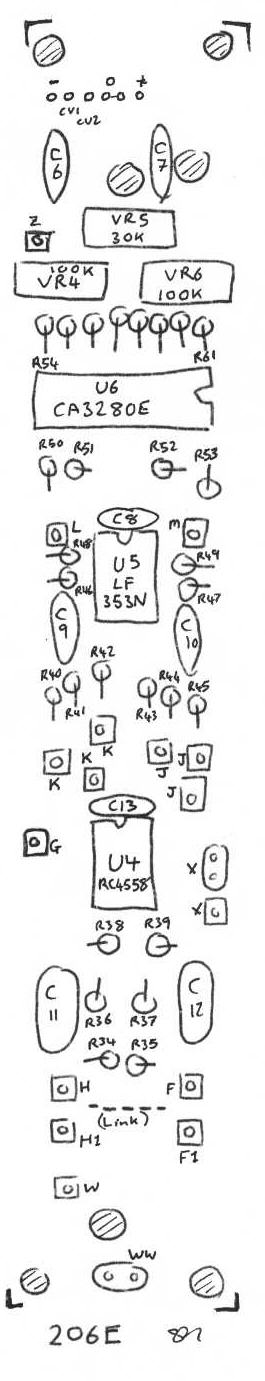 - +
CV1
CV2
C6 C7
Z
VR5
30K
100K
VR4
VR6
100K
R54 R61
U6
CA3280E
R50 R51 R52 R53
C8
L M
R48 R49
U5
LF
353N
R46 R47
C9 C10
R40 R41 R42 R43 R44 R45
K J J
K K J
C13
G
U4
RC4558
X
X
R38 R39
C11 C12
R36 R37
R34 R35
H F
(Link)
H1 F1
W
WW
206E